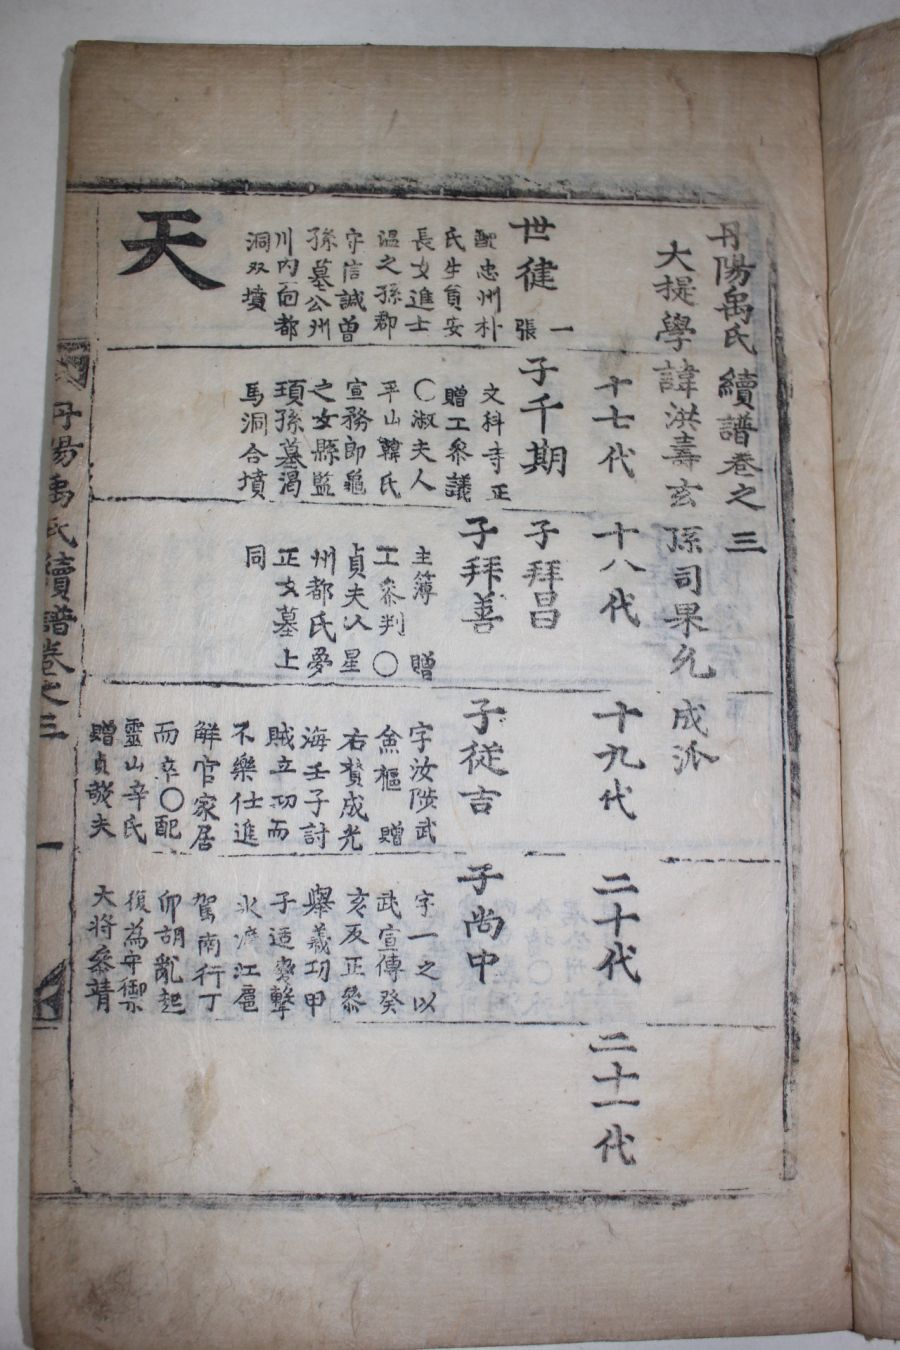 丹陽禹氏續譜卷之三
大提學諱洪壽玄孫司果允成派
世健
一張
配忠州朴
氏生員安
長女進士
溫之孫郡
守信誠曾
孫墓公州
川內面都
洞双墳
天
十七代
子千期
文科寺正
贈工參議
〇淑夫人
平山韓氏
宣務郎龜
之女縣監
頊孫墓渴
馬洞合墳
十八代
子拜昌
子拜善
主簿 贈
工參判〇
貞夫人星
州都氏夢
正女墓上
同
十九代
子從吉
字汝陟武
僉樞 贈
右贊成光
海壬子討
賊立功而
不樂仕進
解官家居
而卒〇配
靈山辛氏
贈貞敬夫
二十代
子尚中
字一之以
武宣傳癸
亥反正參
擧義功甲
子适變擊
氷渡江扈
駕南行丁
卯胡亂起
復為守禦
大將參靖
二十一代
丹陽禹氏續譜卷之三
一